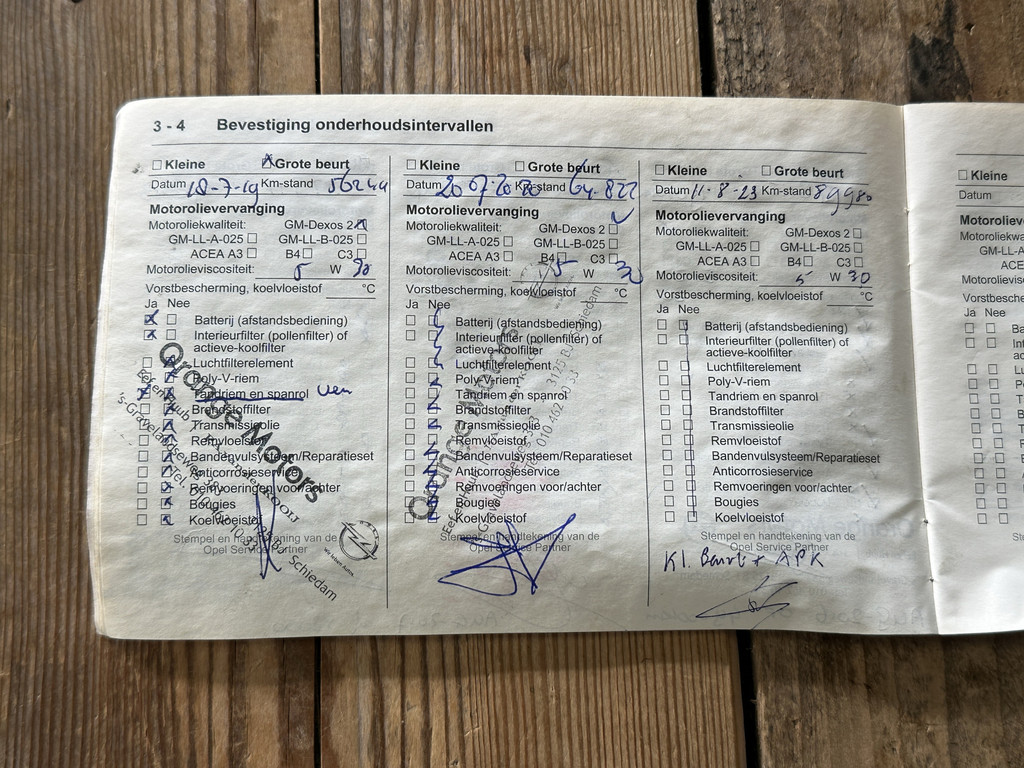 3 - 4 Bevestiging onderhoudsintervallen
Kleine Grote beurt
Datum 18-7-19 Km-stand 56244
Motorolievervanging
Motoroliekwaliteit: GM-Dexos 2
GM-LL-A-025 GM-LL-B-025
ACEA A3 B4 C3
Motorolieviscositeit: 5 W 30
Vorstbescherming, koelvloeistof °C
Ja Nee
Batterij (afstandsbediening)
Interieurfilter (pollenfilter) of
actieve-koolfilter
Luchtfilterelement
Poly-V-riem
Tandriem en spanrol
Brandstoffilter
Transmissieolie
Remvloeistof
Bandenvulsysteem/Reparatieset
Anticorrosieservice
Remvoeringen voor/achter
Bougies
Koelvloeistof
Stempel en handtekening van de
Opel Service Partner
Orange Motors
's-Gravelandseweg
Tel.
Schiedam
Kleine Grote beurt
Datum 20 07-2020 Km-stand 64.822
Motorolievervanging
Motoroliekwaliteit: GM-Dexos 2
GM-LL-A-025 GM-LL-B-025
ACEA A3 B4 C3
Motorolieviscositeit: 5 W 30
Vorstbescherming, koelvloeistof °C
Ja Nee
Batterij (afstandsbediening)
Interieurfilter (pollenfilter) of
actieve-koolfilter
Luchtfilterelement
Poly-V-riem
Tandriem en spanrol
Brandstoffilter
Transmissieolie
Remvloeistof
Bandenvulsysteem/Reparatieset
Anticorrosieservice
Remvoeringen voor/achter
Bougies
Koelvloeistof
Stempel en handtekening van de
Opel Service Partner
Orange Motors
Schiedam
Kleine Grote beurt
Datum 11-8-23 Km-stand 89980
Motorolievervanging
Motoroliekwaliteit: GM-Dexos 2
GM-LL-A-025 GM-LL-B-025
ACEA A3 B4 C3
Motorolieviscositeit: 5 W 30
Vorstbescherming, koelvloeistof °C
Ja Nee
Batterij (afstandsbediening)
Interieurfilter (pollenfilter) of
actieve-koolfilter
Luchtfilterelement
Poly-V-riem
Tandriem en spanrol
Brandstoffilter
Transmissieolie
Remvloeistof
Bandenvulsysteem/Reparatieset
Anticorrosieservice
Remvoeringen voor/achter
Bougies
Koelvloeistof
Stempel en handtekening van de
Opel Service Partner
Kl. Beurt + APK
Kleine
Datum
Ja Nee